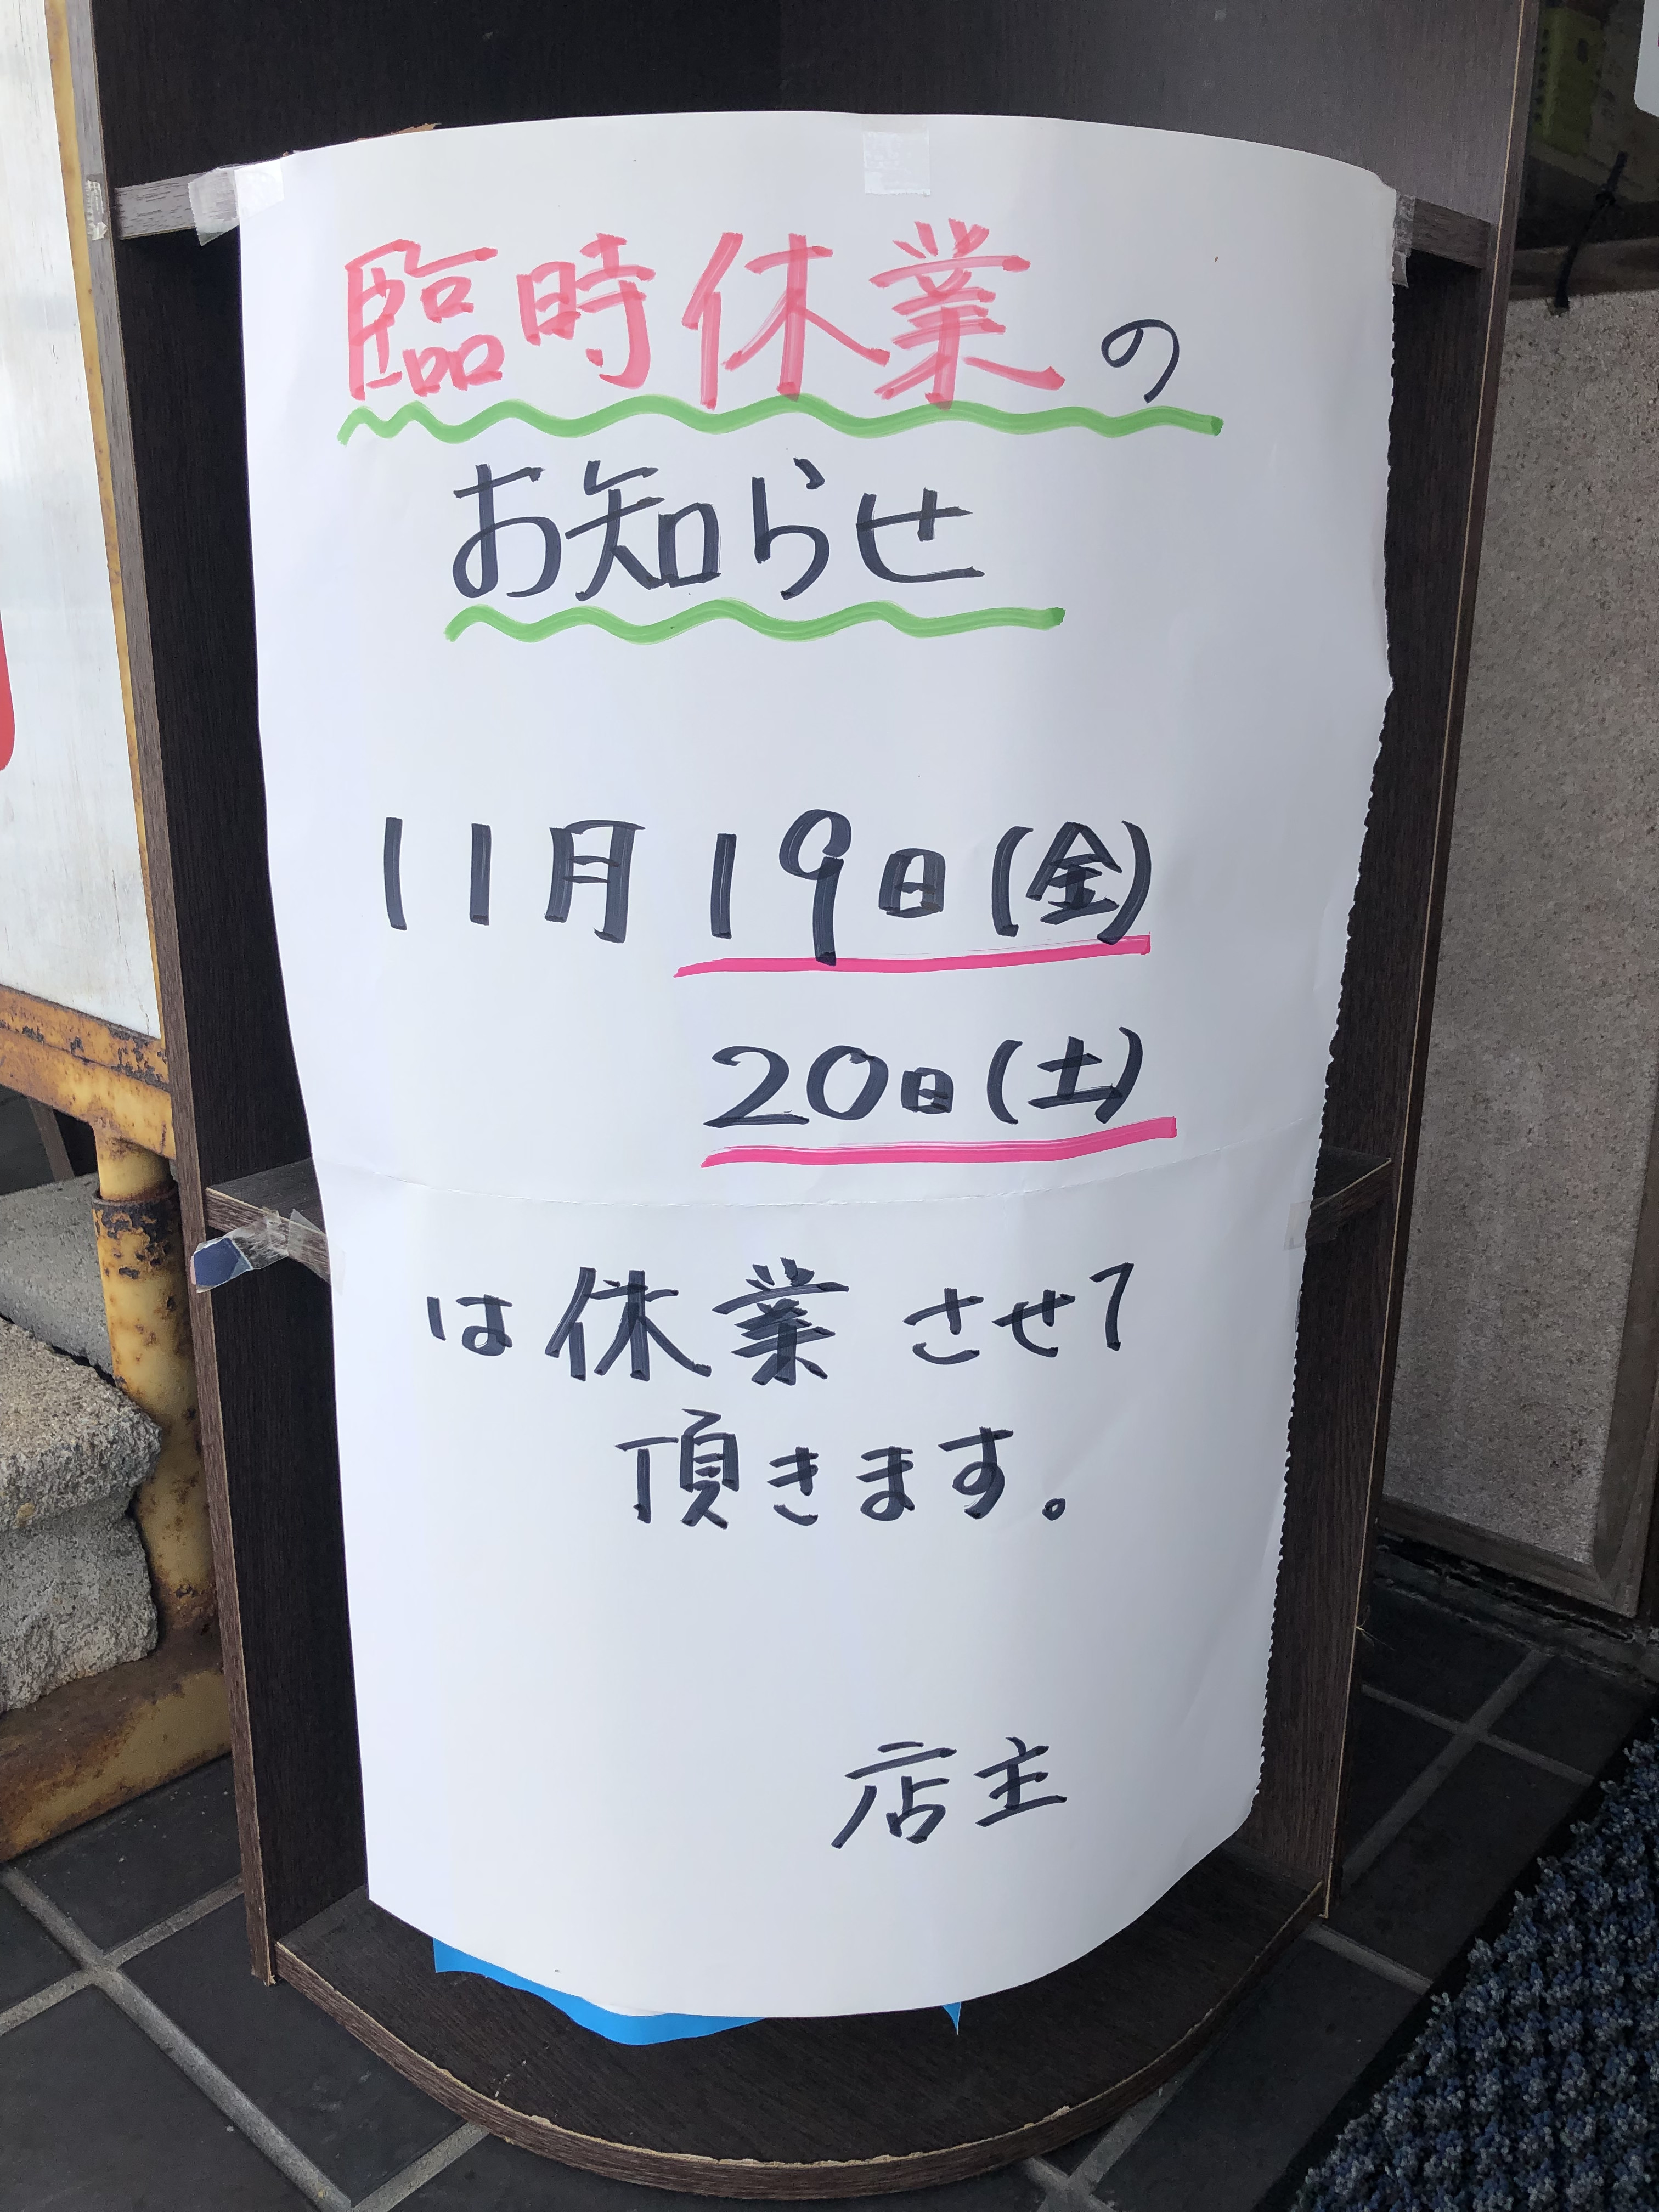 臨時休業の
お知らせ
11月19日(金)
20日(土)
は休業させて
頂きます。
店主